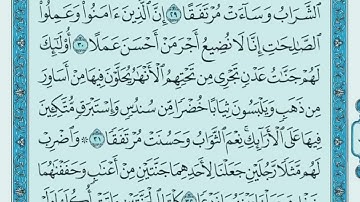 ٱلشَّرَابُ وَسَآءَتْ مُرْتَفَقًا ٢٩ إِنَّ ٱلَّذِينَ ءَامَنُوا۟ وَعَمِلُوا۟
ٱلصَّٰلِحَٰتِ إِنَّا لَا نُضِيعُ أَجْرَ مَنْ أَحْسَنَ عَمَلًا ٣٠ أُو۟لَٰٓئِكَ
لَهُمْ جَنَّٰتُ عَدْنٍ تَجْرِى مِن تَحْتِهِمُ ٱلْأَنْهَٰرُ يُحَلَّوْنَ فِيهَا مِنْ أَسَاوِرَ
مِن ذَهَبٍ وَيَلْبَسُونَ ثِيَابًا خُضْرًا مِّن سُندُسٍ وَإِسْتَبْرَقٍ مُّتَّكِـِٔينَ
فِيهَا عَلَى ٱلْأَرَآئِكِ ۚ نِعْمَ ٱلثَّوَابُ وَحَسُنَتْ مُرْتَفَقًا ٣١ ۞ وَٱضْرِبْ
لَهُم مَّثَلًا رَّجُلَيْنِ جَعَلْنَا لِأَحَدِهِمَا جَنَّتَيْنِ مِنْ أَعْنَٰبٍ وَحَفَفْنَٰهُمَا